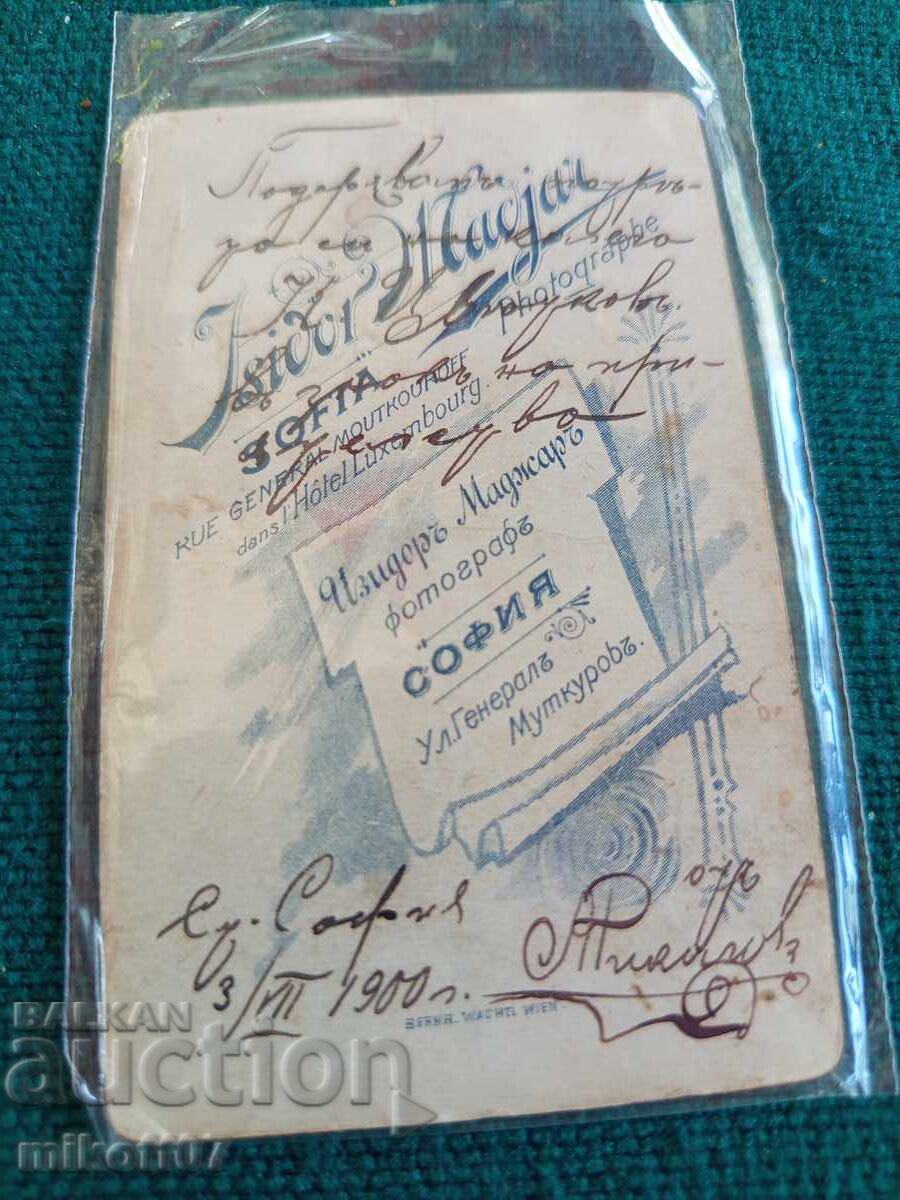 Подарявамъ
си на колега
Isidor Madjar
photographe
SOFIA
RUE GENERAL MOUTKOUROFF
dans l'Hôtel Luxembourg.
въ знакъ на при-
Изидоръ Маджаръ
фотографъ
СОФИЯ
Ул. Генералъ
Муткуровъ.
гр. София
3/VII 1900 г.
отъ
BERNH. WACHTL WIEN
BALKAN
auction
mikot107